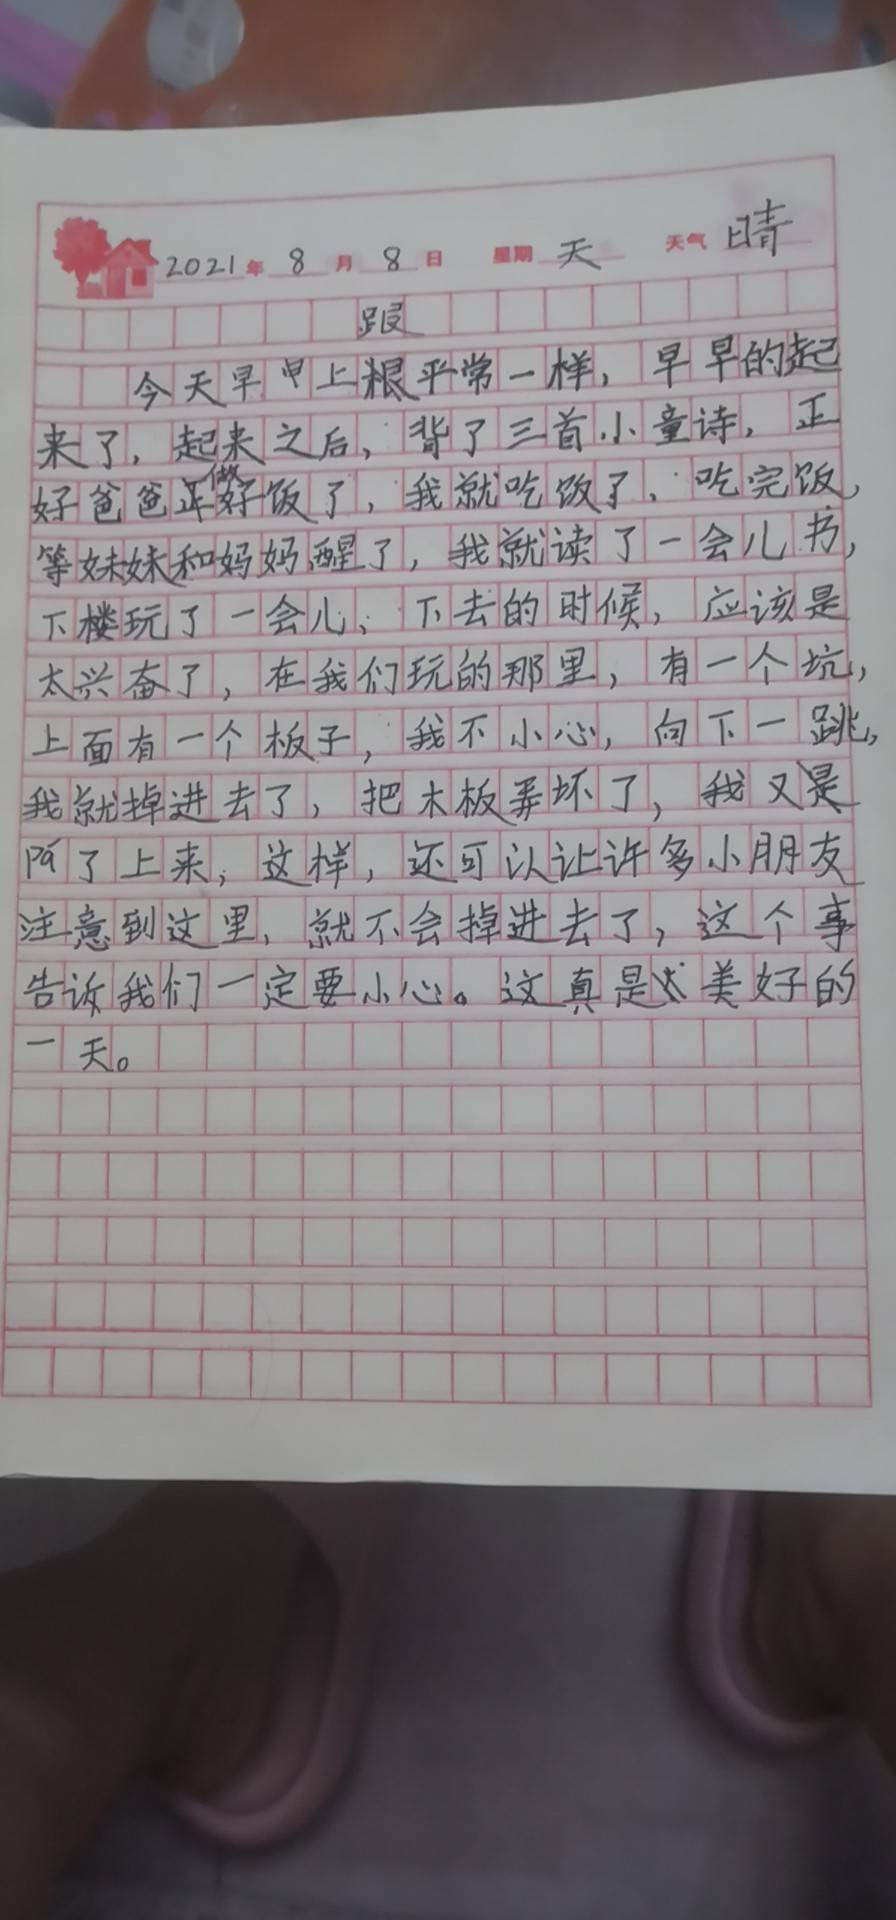 2021年 8月 8日 星期 天 天气 晴
今天早甲上粮平常一样，早早的起
来了，起来之后，背了三首小童诗，正
好爸爸做好饭了，我就吃饭了、吃完饭，
等妹妹和妈妈醒了，我就读了一会儿书，
下楼玩了一会儿，下去的时候，应该是
太兴奋了，在我们玩的那里，有一个坑，
上面有一个板子，我不小心，向下一跳，
我就掉进去了，把木板弄坏了，我又
了上来，这样，还可以让许多小朋友
注意到这里，就不会掉进去了，这个事
告诉我们一定要小心。这真是美好的
一天。